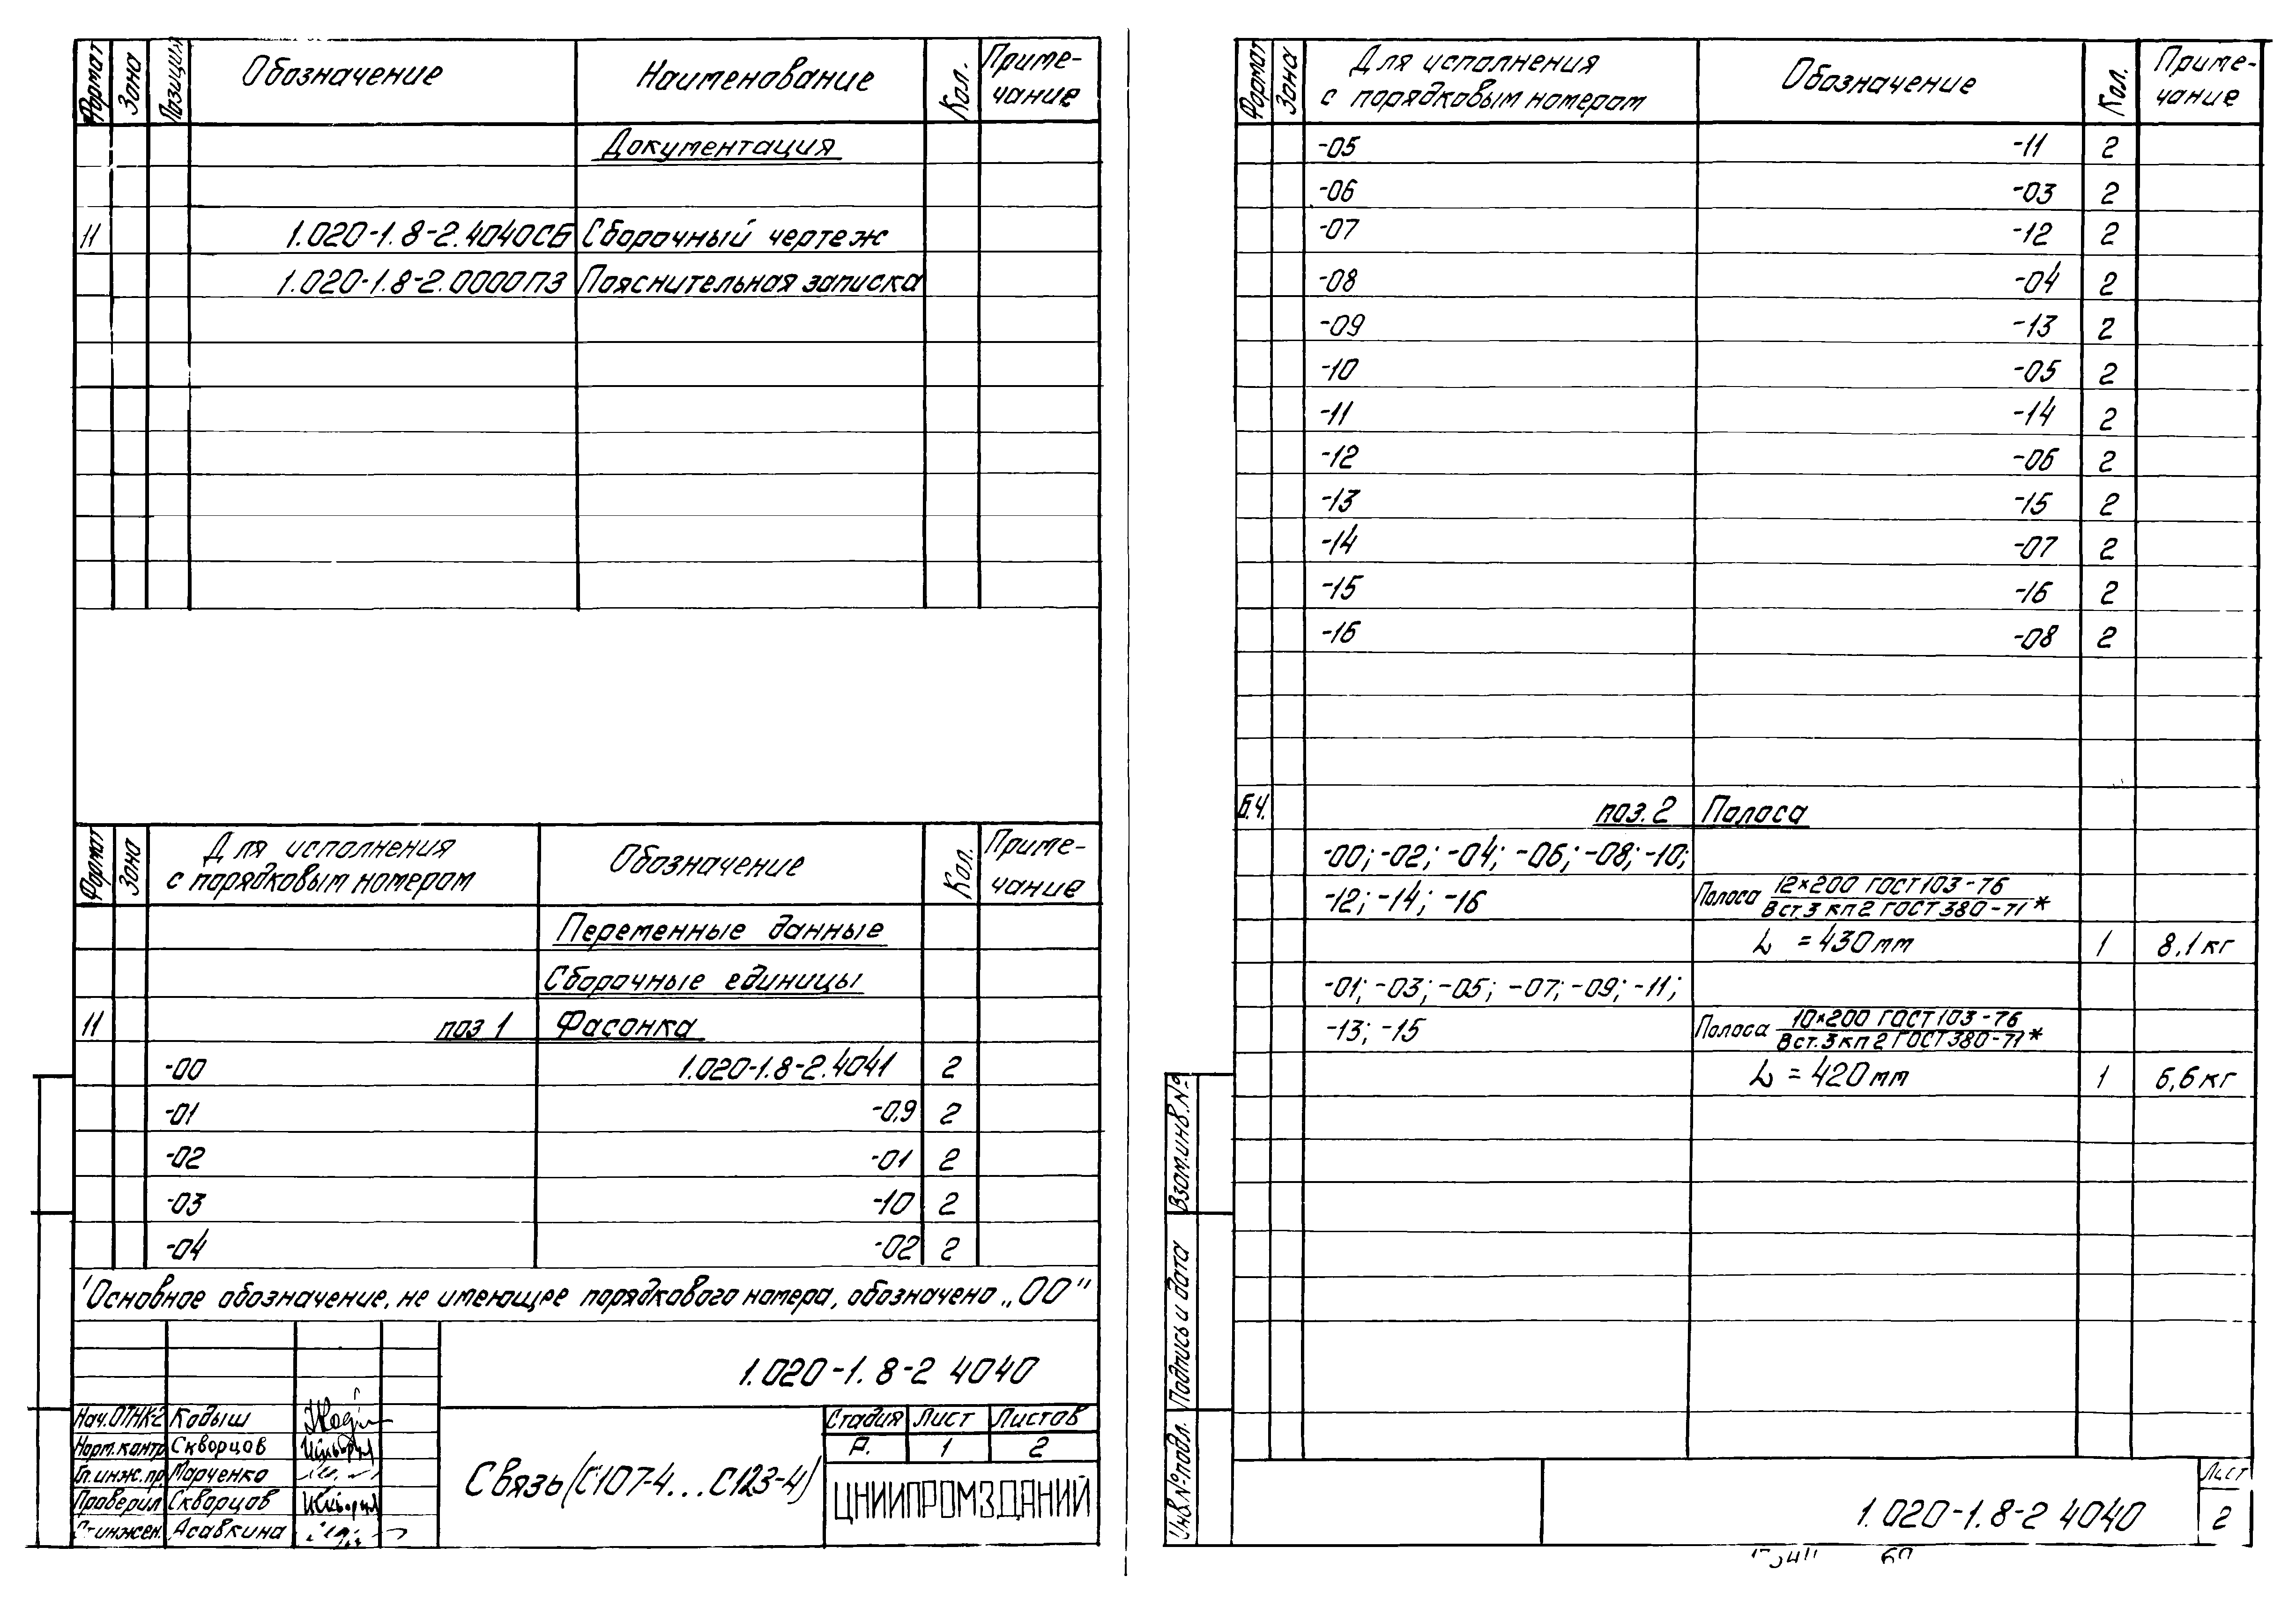 Формат Зона Позиция Обозначение Наименование Кол. Приме-
чание
Документация
11 1.020-1.8-2.4040СБ Сборочный чертеж
1.020-1.8-2.0000ПЗ Пояснительная записка
Формат Зона Для исполнения
с порядковым номером Обозначение Кол. Приме-
чание
Переменные данные
Сборочные единицы
11 поз 1 Фасонка
-00 1.020-1.8-2.4041 2
-01 -0,9 2
-02 -01 2
-03 -10 2
-04 -02 2
'Основное обозначение, не имеющее порядкового номера, обозначено „00"
1.020-1.8-2 4040
Нач.ОТНК-2 Кодыш
Норм.контр Скворцов
Гл.инж.пр Марченко
Проверил Скворцов
Ст.инжен. Асавкина
Связь (С107-4...С123-4)
Стадия Лист Листов
Р. 1 2
ЦНИИПРОМЗДАНИЙ
Формат Зона Для исполнения
с порядковым номером Обозначение Кол. Приме-
чание
-05 -11 2
-06 -03 2
-07 -12 2
-08 -04 2
-09 -13 2
-10 -05 2
-11 -14 2
-12 -06 2
-13 -15 2
-14 -07 2
-15 -16 2
-16 -08 2
Б.Ч. поз. 2 Полоса
-00; -02; -04; -06; -08; -10;
-12; -14; -16 Полоса 12×200 ГОСТ 103-76
Вст.3 кп2 ГОСТ 380-71*
L = 430мм 1 8,1 кг
-01; -03; -05; -07; -09; -11;
-13; -15 Полоса 10×200 ГОСТ 103-76
Вст.3кп2 ГОСТ 380-71*
L = 420мм 1 6,6 кг
Взам.инв.№
Подпись и дата
Инв.№подл.
1.020-1.8-2 4040
Лист
2